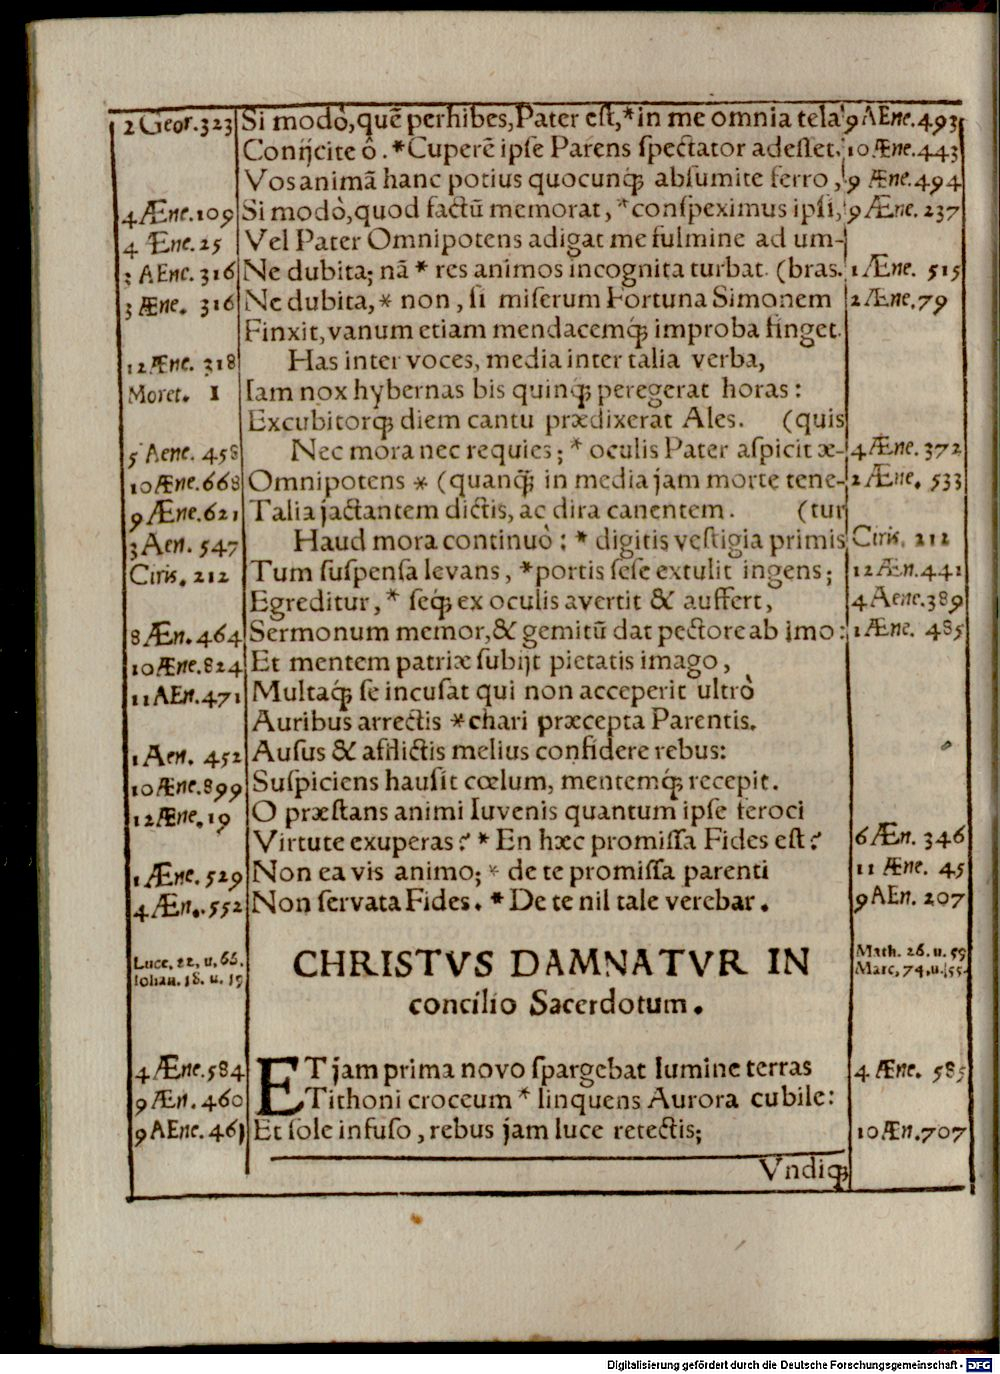 2 Geor.323 Si modò,quẽ perhibes,Pater est,*in me omnia tela 9 AEne.493
Conijcite ô.*Cuperẽ ipse Parens spectator adesset. 10 Æne.443
Vos animã hanc potius quocunq; absumite ferro, 9 Æne.494
4 Æne.109 Si modò,quod factũ memorat,*conspeximus ipsi, 9 Æne.237
4 Æne.25 Vel Pater Omnipotens adigat me fulmine ad um-
3 AEne.316 Ne dubita; nã * res animos incognita turbat. (bras. 1 Æne. 515
3 Æne. 316 Ne dubita,* non, si miserum Fortuna Simonem 2 Æne,79
Finxit,vanum etiam mendacemq́; improba finget.
12 Æne. 318 Has inter voces, media inter talia verba,
Moret. 1 Iam nox hybernas bis quinq; peregerat horas:
Excubitorq; diem cantu prædixerat Ales. (quis
5 Aene.458 Nec mora nec requies; * oculis Pater aspicit æ- 4 Æne.372
10 Æne.668 Omnipotens * (quanq̃; in media jam morte tene- 2 Æne. 533
9 Æne.621 Talia jactantem dictis, ac dira canentem. (tur
3 Aen. 547 Haud mora continuò: * digitis vestigia primis Ciris. 212
Ciris. 212 Tum suspensa levans, *portis sese extulit ingens; 12 Æn.441
Egreditur, * seq́; ex oculis avertit & auffert, 4 Aene.389
8 Æn.464 Sermonum memor,& gemitũ dat pectore ab imo: 1 Æne. 485
10 Æne.824 Et mentem patriæ subijt pietatis imago,
11 AEn.471 Multaq́; se incusat qui non acceperit ultrò
Auribus arrectis *chari præcepta Parentis.
1 Aen. 452 Ausus & afflictis melius confidere rebus:
10 Æne.899 Suspiciens hausit cœlum, mentemq́; recepit.
12 Æne.19 O præstans animi Iuvenis quantum ipse feroci
Virtute exuperas? * En hæc promissa Fides est? 6 Æn. 346
1 Æne. 529 Non ea vis animo; * de te promissa parenti 11 Æne. 45
4 Æn..552 Non servata Fides. * De te nil tale verebar. 9 AEn. 207
Luce. 22, u. 66. CHRISTVS DAMNATVR IN Math. 26. u. 59
Iohan. 18. u. 19 concilio Sacerdotum. Marc, 74.u.55.
4 Æne.584 ET jam prima novo spargebat lumine terras 4 Æne. 585
9 Æn. 460 Tithoni croceum * linquens Aurora cubile:
9 AEne. 461 Et sole infuso, rebus jam luce retectis; 10 Æn.707
Vndiq;
Digitalisierung gefördert durch die Deutsche Forschungsgemeinschaft - DFG